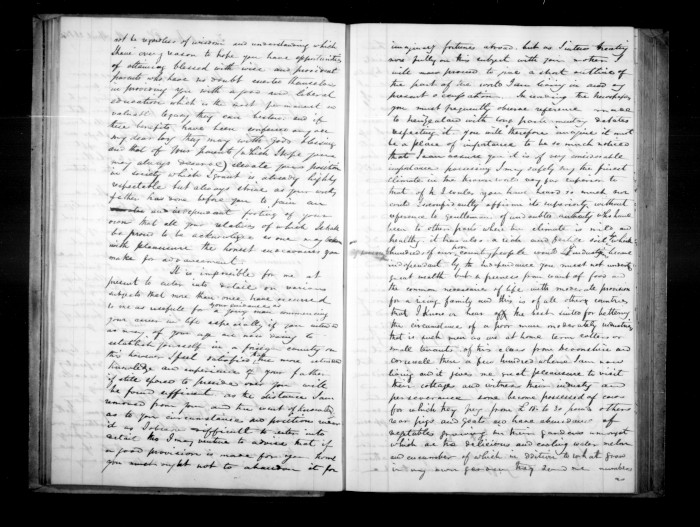 not be regardless of wisdom and understanding which
I have every reason to hope you have opportunities
of attaining blessed with wise and provident
parents who have no doubt
in providing you with a good and liberal
education which is the most permanent and
valuable legacy they can bestow and if
these benefits have been conferred on you
my dear boy they may with gods blessing
and that of your parents which I hope you
may always deserve elevate your position
in society which I grant is already highly
respectable but always strive as your worthy
father has done before you to
and independant footing of your
own that all your relatives of which I shall
be proud to be acknowledged as one may
with pleasure the honest endeavours you
make for advancement.
It is impossible for me at
present to enter into detail on various
subjects that more than once have occurred
to me as useful for a young man commencing
your career in life especially if you
as many of your age are now doing to
establish yourself in a foreign country on
this however I feel satisfied the more extended
knowledge and experience of your father
if still spared to preside over you will
be found sufficient as the distance I am
removed from you and the want of knowledge
as to your circumstances and position render
it as I before difficult to enter into
detail tho I may venture to advise that if
a good provision is made for you home
you ought not to abandon it for
imaginary fortunes abroad. but as I intend treating
more fully on this subject with your mother I
will now proceed to give a short outline of
the part of the world I am living in and my
present occupation. In viewing the newspapers
you must frequently observe reference made
to New Zealand with long parliamentary debates
respecting it you will therefore imagine it must
be a place of importance to be so much noticed
that I can assure you it is of very considerable
importance possessing I may safely say the finest
climate in the known world very far superior to
that of
could I confidently affirm its superiority without
reference to gentlemen of undoubted authority who have
been to other places where the climate is mild and
healthy it has also a rich and fertile soil which
hundreds of our poor country people would industry become
independent by the independence you must not understand
great wealth but a freeness from want of food and
the common necessaries of life with moderate provision
for a rising family and this is of all other countries
that I know or hear of the best suited for bettering
the circumstance of a poor man moderately industrious
that is such men as we at home term cottagers or
small tenants of this class from Devonshire and
Cornwall there a few hundred where I am now
living and it gives me great pleasure to visit
their cottages and witness their industry and
perseverance some become possessed of cows
for which they pay from £18 to 30 pounds others
rear pigs and goats and have abundance of
vegetables growing in their gardens amongst
which are the delicious and cooling water melon
and cucumber of which in addition to what grows
in my own garden they send me numbers